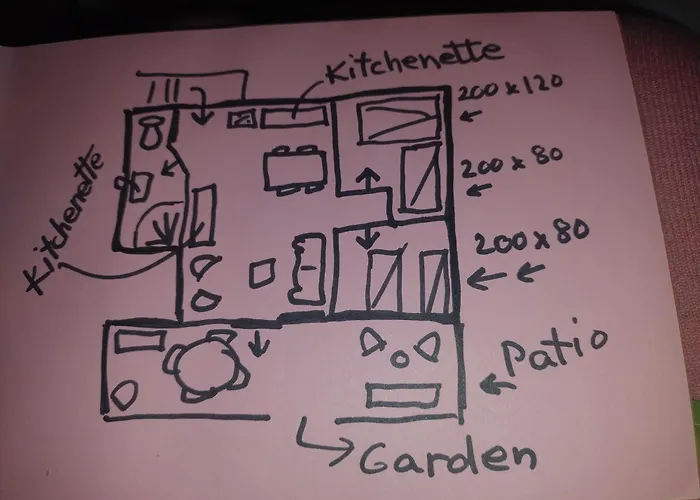 Kitchenette
200 x 120
Kitchenette
200 x 80
200 x 80
Patio
Garden